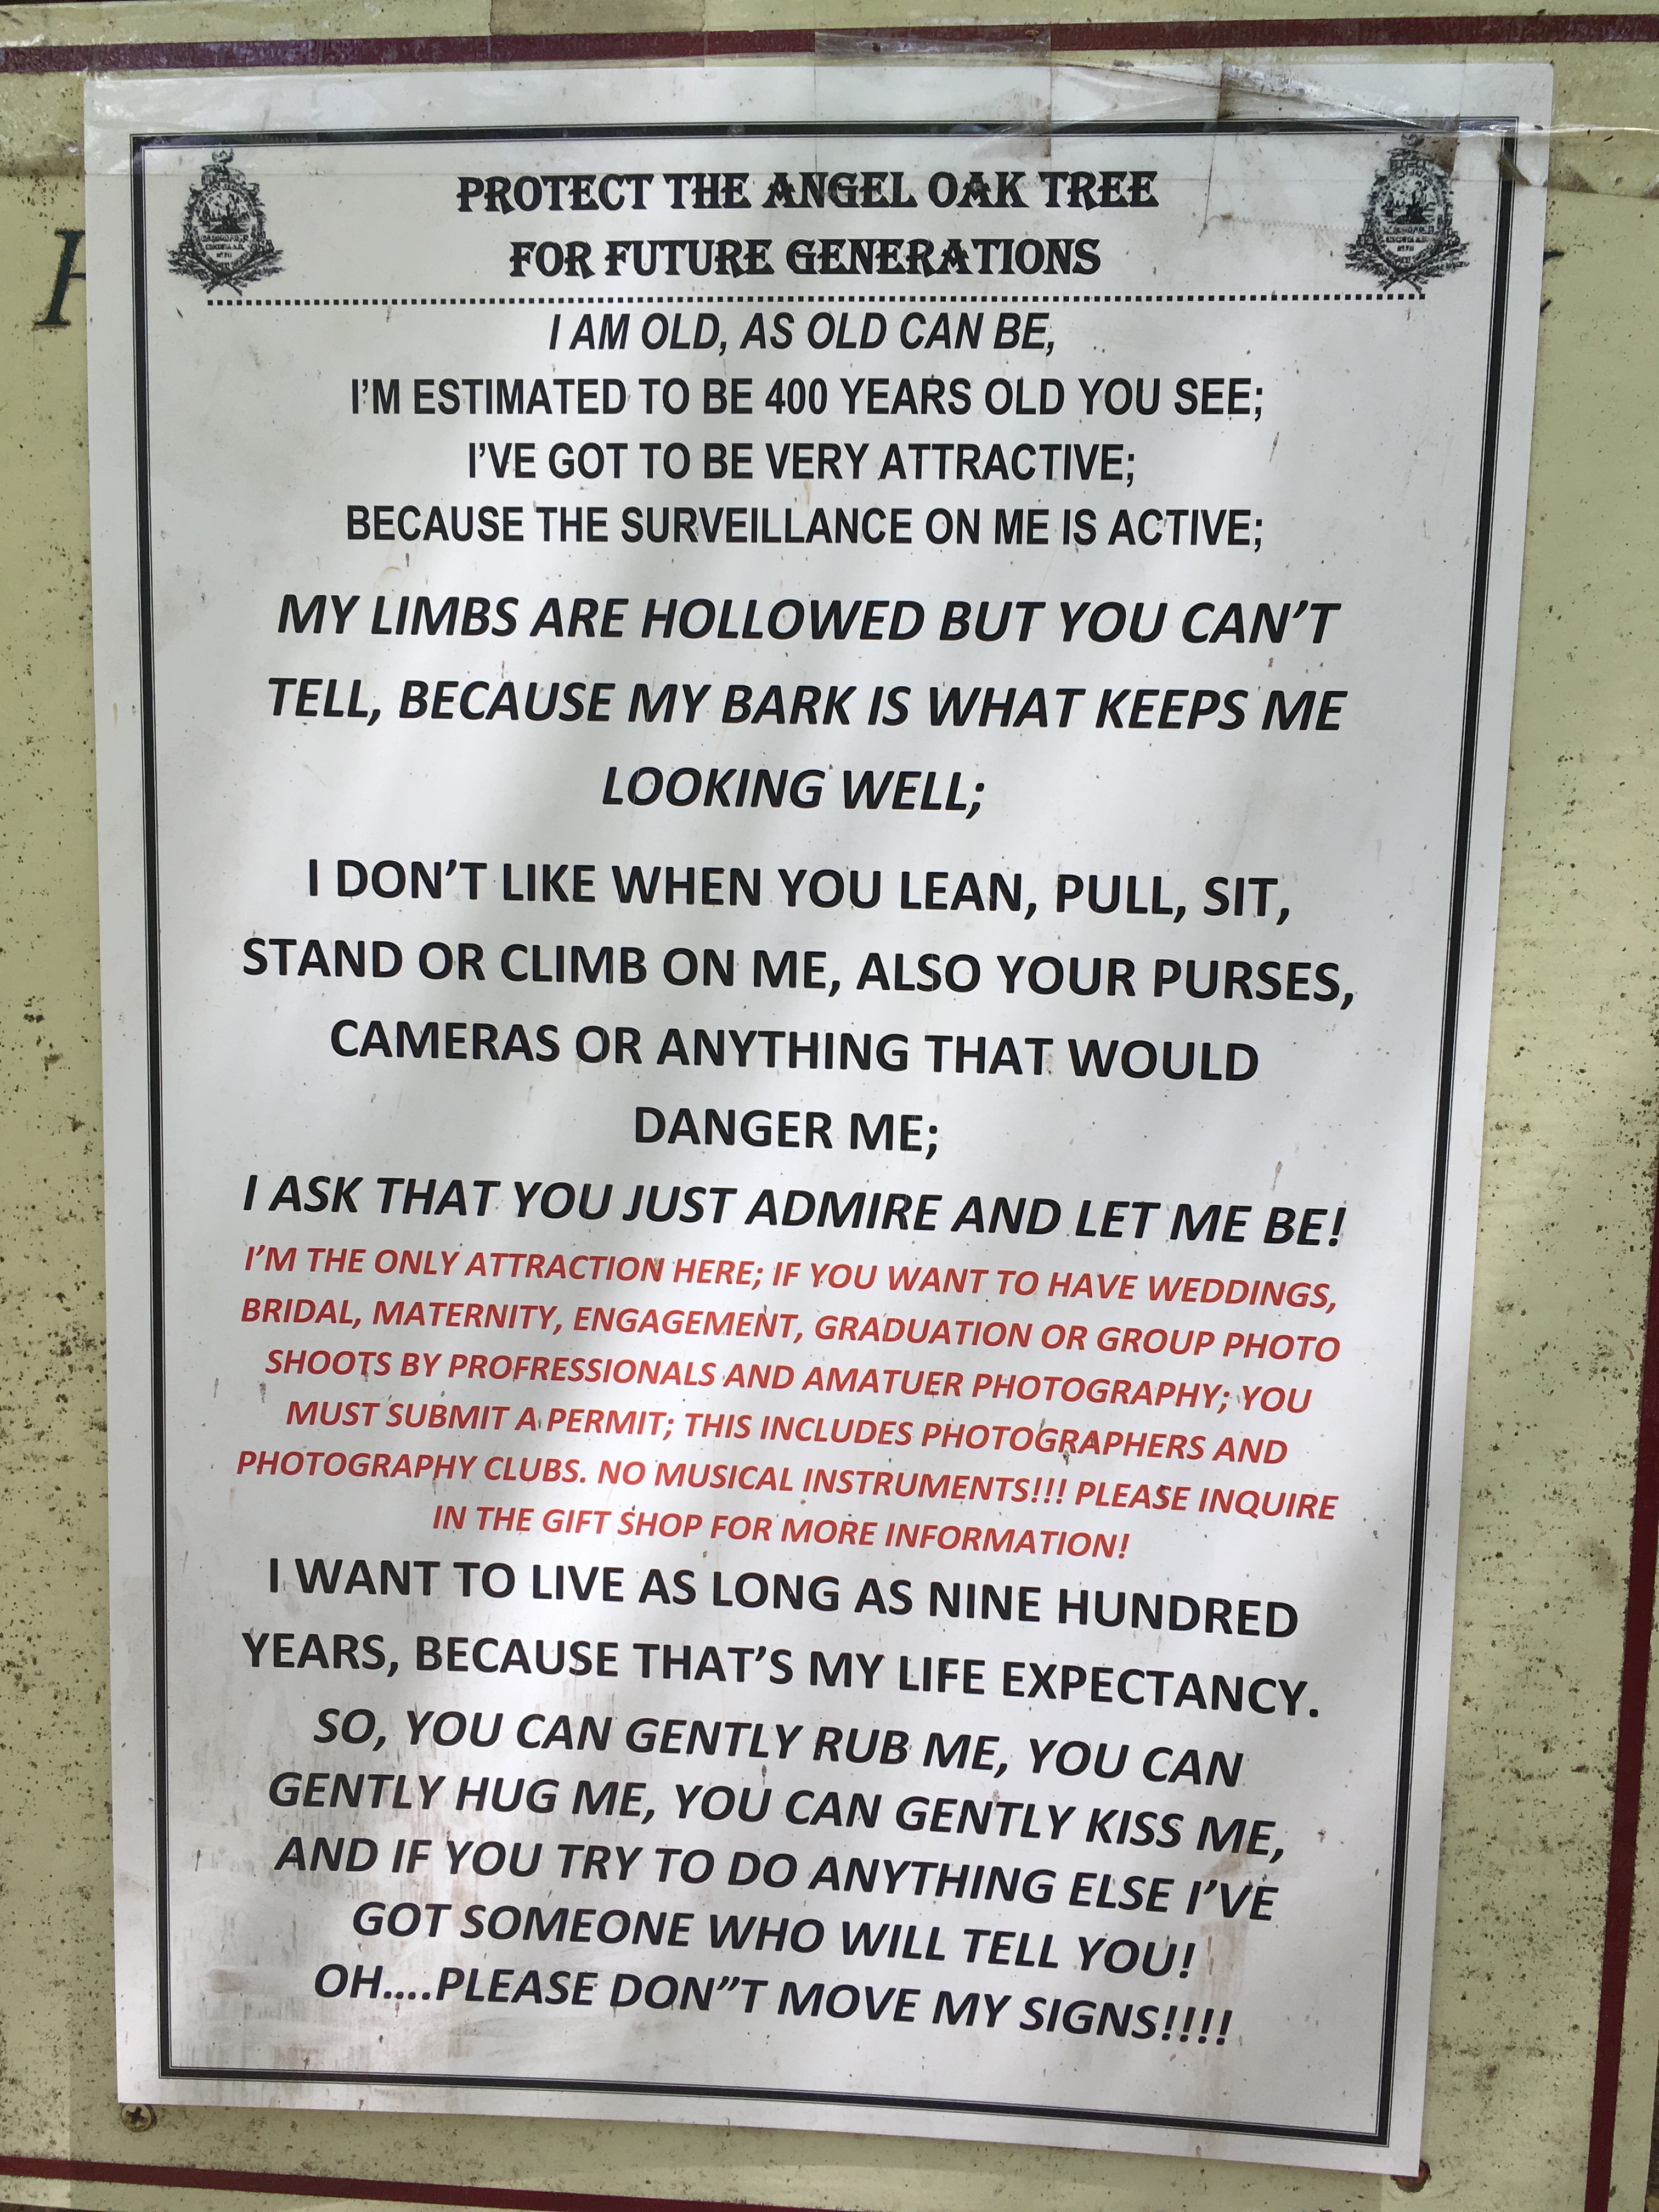 PROTECT THE ANGEL OAK TREE
FOR FUTURE GENERATIONS
I AM OLD, AS OLD CAN BE,
I'M ESTIMATED TO BE 400 YEARS OLD YOU SEE;
I'VE GOT TO BE VERY ATTRACTIVE;
BECAUSE THE SURVEILLANCE ON ME IS ACTIVE;
MY LIMBS ARE HOLLOWED BUT YOU CAN'T
TELL, BECAUSE MY BARK IS WHAT KEEPS ME
LOOKING WELL;
I DON'T LIKE WHEN YOU LEAN, PULL, SIT,
STAND OR CLIMB ON ME, ALSO YOUR PURSES,
CAMERAS OR ANYTHING THAT WOULD
DANGER ME;
I ASK THAT YOU JUST ADMIRE AND LET ME BE!
I'M THE ONLY ATTRACTION HERE; IF YOU WANT TO HAVE WEDDINGS,
BRIDAL, MATERNITY, ENGAGEMENT, GRADUATION OR GROUP PHOTO
SHOOTS BY PROFRESSIONALS AND AMATUER PHOTOGRAPHY; YOU
MUST SUBMIT A PERMIT; THIS INCLUDES PHOTOGRAPHERS AND
PHOTOGRAPHY CLUBS. NO MUSICAL INSTRUMENTS!!! PLEASE INQUIRE
IN THE GIFT SHOP FOR MORE INFORMATION!
I WANT TO LIVE AS LONG AS NINE HUNDRED
YEARS, BECAUSE THAT'S MY LIFE EXPECTANCY.
SO, YOU CAN GENTLY RUB ME, YOU CAN
GENTLY HUG ME, YOU CAN GENTLY KISS ME,
AND IF YOU TRY TO DO ANYTHING ELSE I'VE
GOT SOMEONE WHO WILL TELL YOU!
OH....PLEASE DON"T MOVE MY SIGNS!!!!